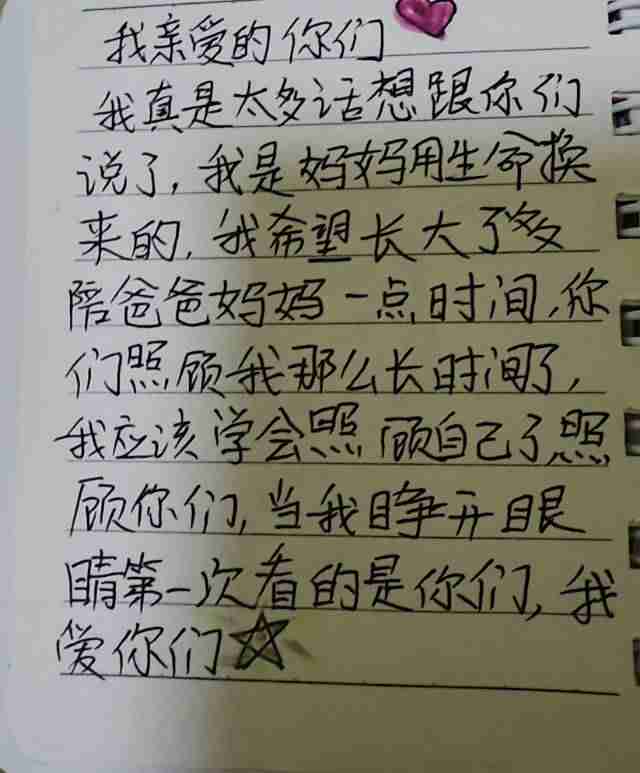 我亲爱的你们
我真是太多话想跟你们
说了,我是妈妈用生命换
来的,我希望长大了多
陪爸爸妈妈一点时间,你
们照顾我那么长时间了,
我应该学会照顾自己了照
顾你们,当我睁开眼
睛第一次看的是你们,我
爱你们